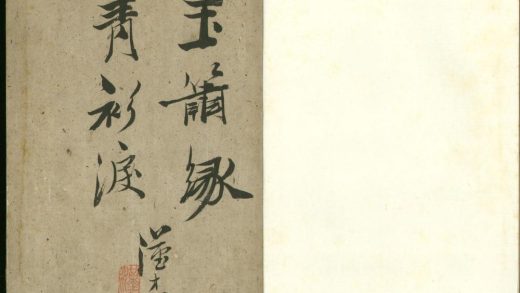 玉簫緣
青衫淚